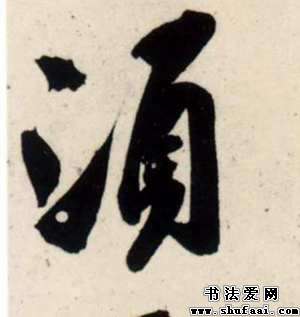 須
书法爱网
www.shufaai.com